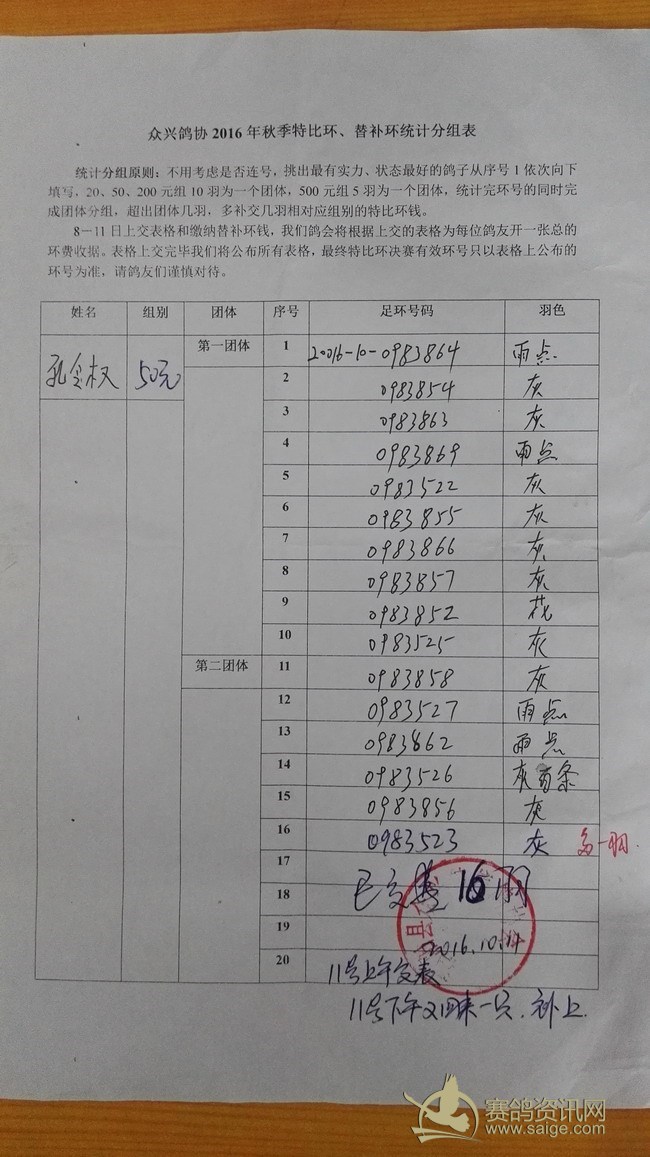 众兴鸽协 2016 年秋季特比环、替补环统计分组表
统计分组原则：不用考虑是否连号，挑出最有实力、状态最好的鸽子从序号 1 依次向下
填写，20、50、200 元组 10 羽为一个团体，500 元组 5 羽为一个团体，统计完环号的同时完
成团体分组，超出团体几羽，多补交几羽相对应组别的特比环钱。
8－11 日上交表格和缴纳替补环钱，我们鸽会将根据上交的表格为每位鸽友开一张总的
环费收据。表格上交完毕我们将公布所有表格，最终特比环决赛有效环号只以表格上公布的
环号为准，请鸽友们谨慎对待。
姓名 组别 团体 序号 足环号码 羽色
孔令权 50元 第一团体 1 20016-10-0983864 雨点
2 0983854 灰
3 0983863 灰
4 0983869 雨点
5 0983522 灰
6 0983855 灰
7 0983866 灰
8 0983857 灰
9 0983852 花
10 0983525 灰
第二团体 11 0983858 灰
12 0983527 雨点
13 0983862 雨点
14 0983526 灰白条
15 0983856 灰
16 0983523 灰 多一羽
17
已交 16羽
18
19
2016.10.11
20
11号上午交表
11号下午又回来一只．补上．
赛鸽资讯网
www.saige.com